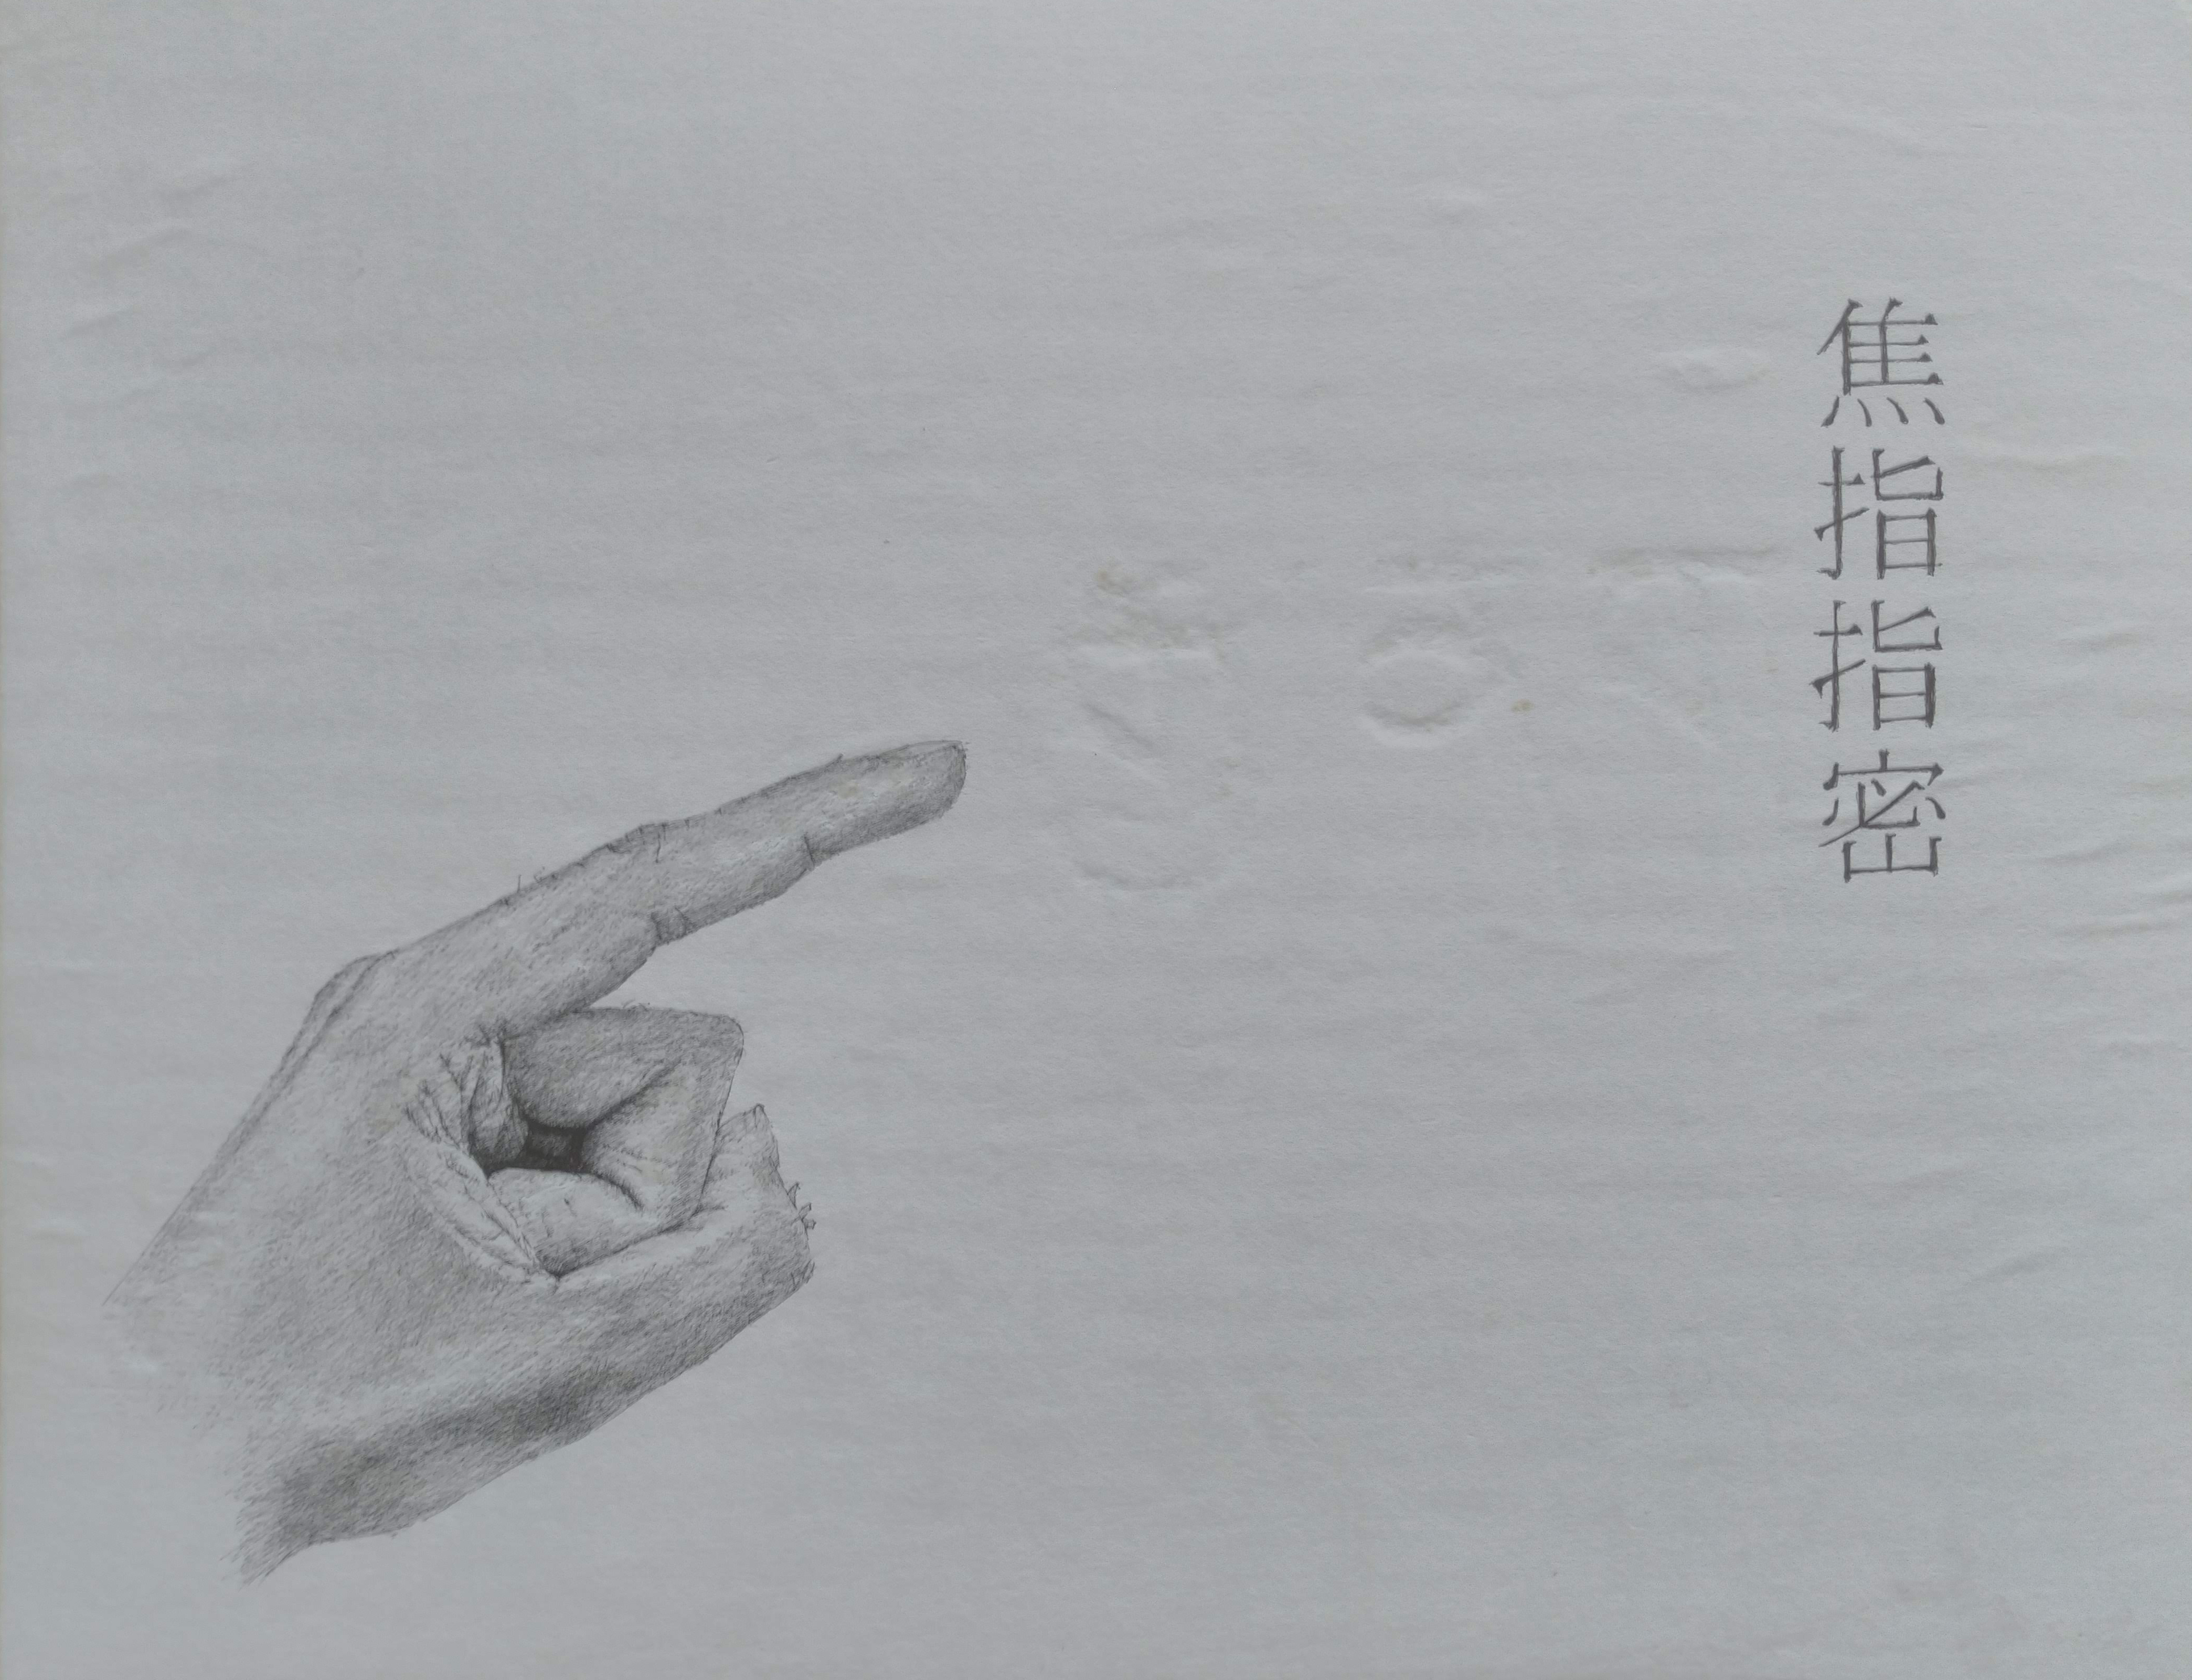 焦指指密